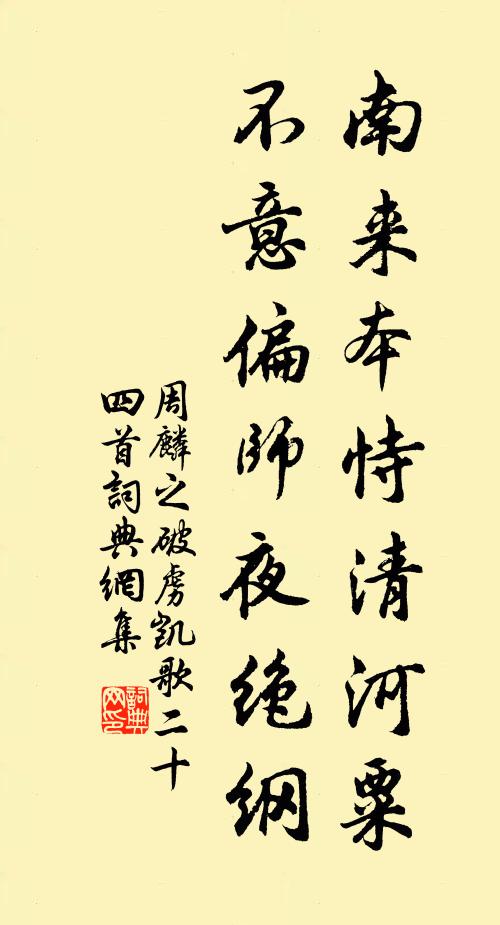 南来本恃清河粟
不意偏師夜绝纲
周麟之破虏凯歌二十
四首詞典網集
詞典网印